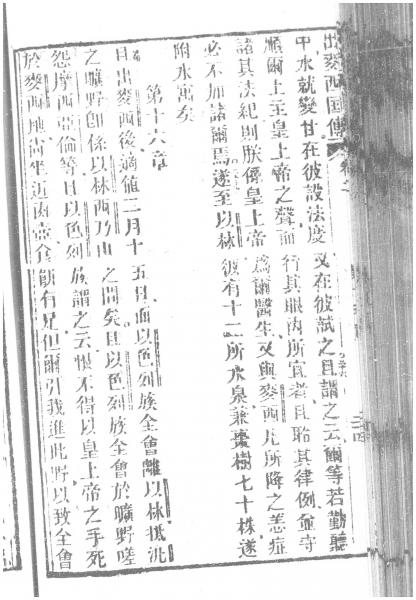 出麥西国傳 卷之
中水就變甘在彼設法度又在彼試之且謂之云爾等若勤聽
順爾上主皇上帝之聲而行其眼內所宜者且聆其律例並守
諸其法紀則朕係皇上帝爲爾醫生又與麥西凡所降之恙症
必不加諸爾焉遂至以林彼有十二所水泉兼棗樹七十株遂
附水寓矣
第十六章
且出麥西後適値二月十五日而以色列族全會離以林抵汛
之曠野卽係以林西乃山之間矣且以色列族全會於曠野嗟
怨摩西亞倫等且以色列族謂之云恨不得以皇上帝之手死
於麥西地尚坐近肉壺食有但爾引我進此野以致全會